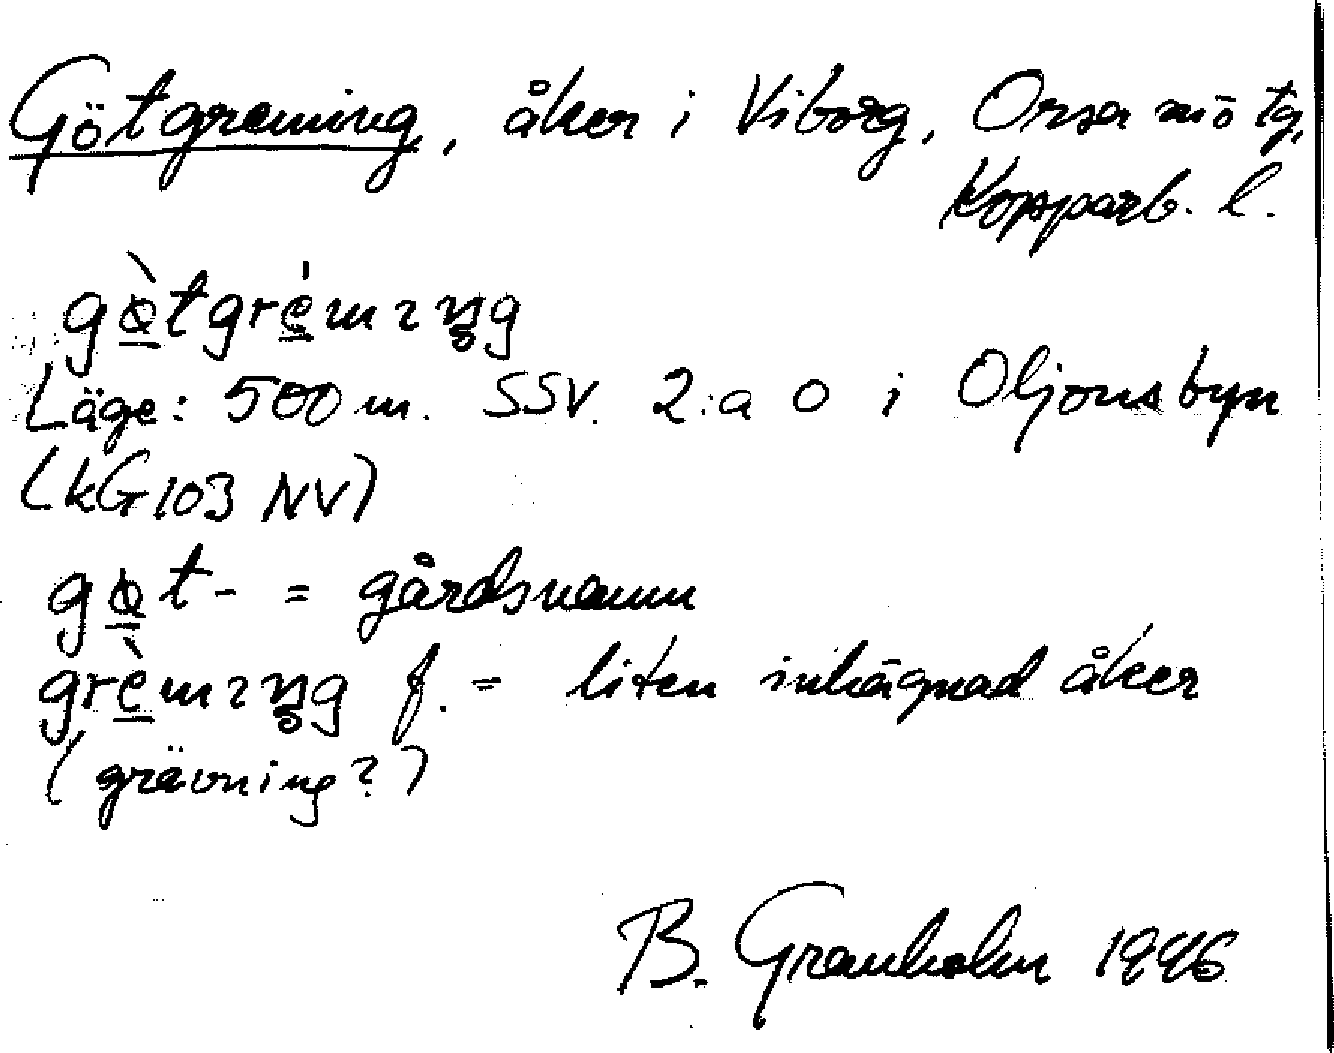 Götgrening, åker i Viborg, Orsa sn ö tg,
Kopparb. l.
Läge: 500 m. SSV. 2:a o i Oljonsbyn
(kG 103 NV)
= gårdsnamn
f. = liten inhägnad åker
(grävning?)
B. Granholm 1996